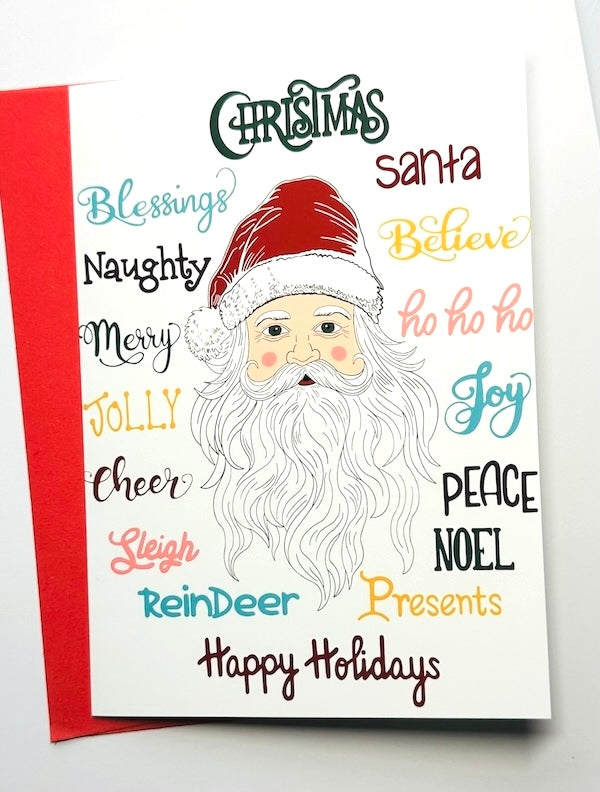 CHRISTMAS
santa
Blessings
Believe
Naughty
ho ho ho
Merry
Joy
JOLLY
Cheer
PEACE
Sleigh
NOEL
ReinDeer
Presents
Happy Holidays